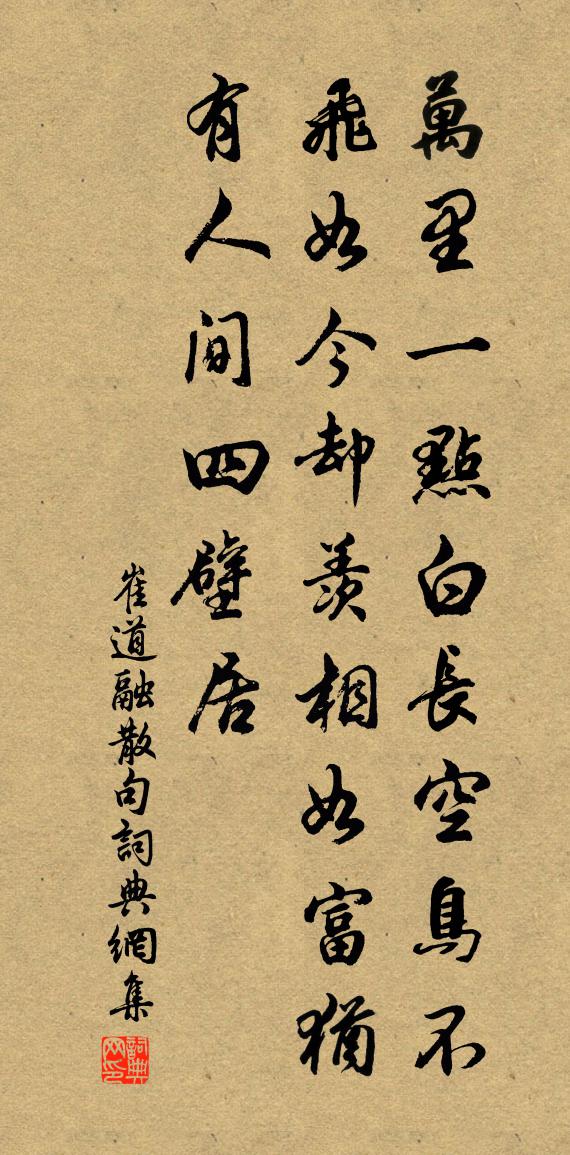 萬里一點白長空鳥不
飛如今却羨相如富猶
有人間四壁居
崔道融散句詞典網集
詞典
网印